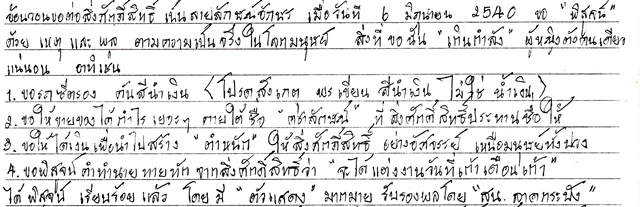 อ้อนวอนขอต่อสิ่งศักดิ์สิทธิ์ เป็นลายลักษณ์อักษร เมื่อวันที่ 6 มิถุนายน 2540 ขอ "พิสูจน์"
ด้วย เหตุ และ ผล ตามความเป็นจริงในโลกมนุษย์ สิ่งที่ขอนั้น "เกินกำลัง" ผู้หญิงตัวคนเดียว
แน่นอน อาทิเช่น
1. ขอรถซีตรอง คันสีน้ำเงิน (โปรดสังเกต พรเขียน สีน้ำเงิน ไม่ใช่ น้ำเงิน)
2. ขอให้ขายของได้กำไร เยอะๆ ภายใต้ชื่อ ที่สิ่งศักดิ์สิทธิ์ประทานชื่อให้
3. ขอให้ได้เงินเพื่อนำไปสร้าง "ตำหนัก" ให้สิ่งศักดิ์สิทธิ์ อย่างอัศจรรย์ เหนือมนุษย์ทั้งปวง
4. ขอพิสูจน์ คำทำนายทายทัก จากสิ่งศักดิ์สิทธิ์ว่า "จะได้แต่งงานวันที่เก้าเดือนเก้า"
ได้ พิสูจน์ เรียบร้อย แล้ว โดย มี "ตัวแสดง" มากมาย รับรองผลโดย